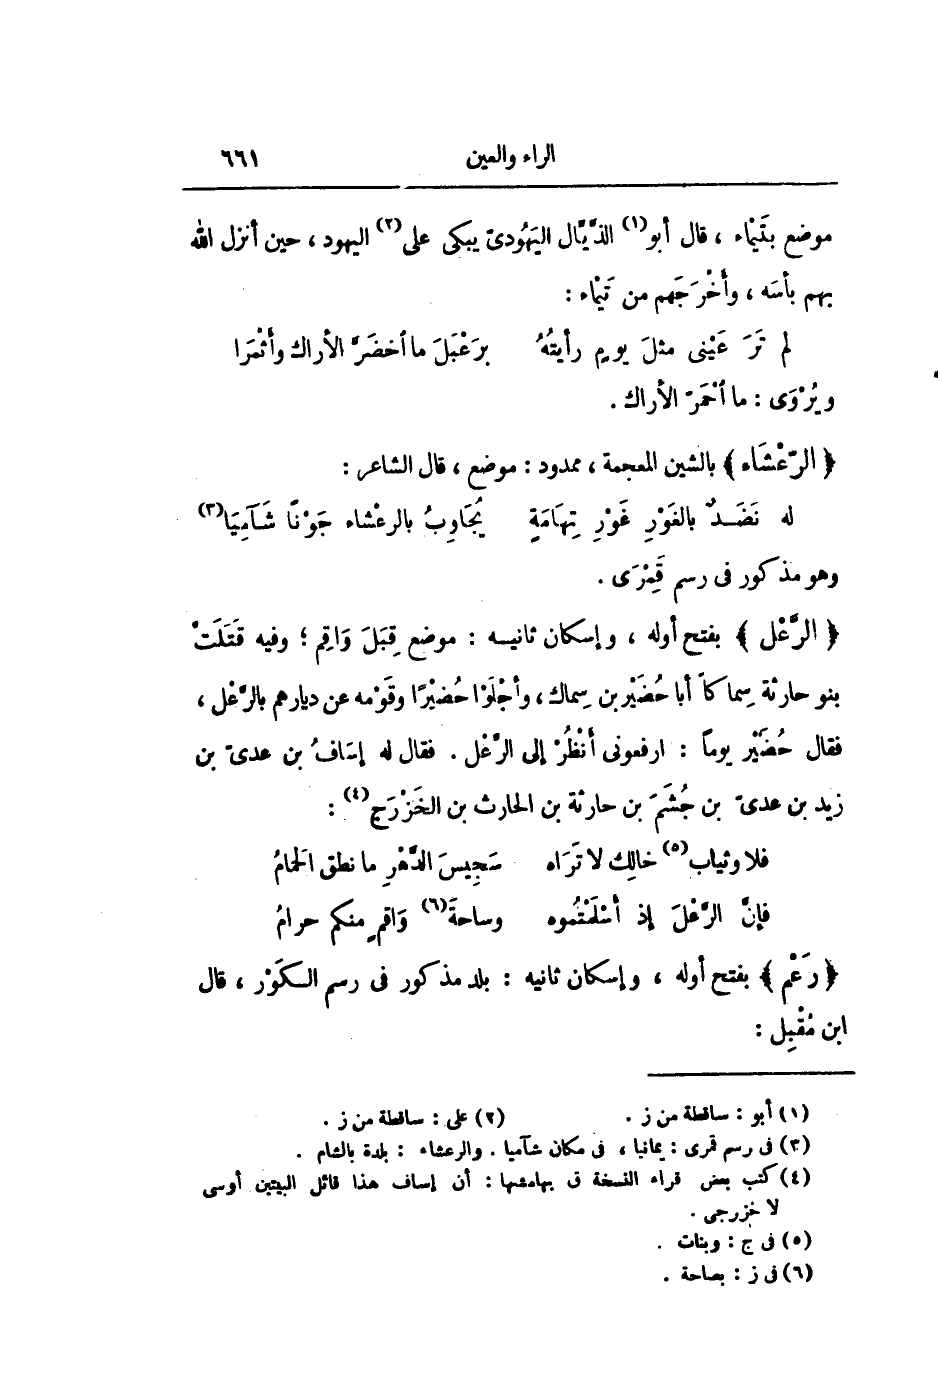 الراء والعين ٦٦١
موضع بتَيْماء ، قال أبو(١) الذَّيَّال اليَهُودىّ يبكى على(٢) اليهود ، حين أنزل الله
بهم بأسَه ، وأخْرَجَهم من تَيْماء :
لم تَرَ عَيْنى مثلَ يومٍ رأيتُهُ برَعْبَلَ ما اخضَرَّ الأراك وأثْمَرا
ويُرْوَى : ما احْمَرّ الأراك .
﴿ الرّعْشَاء ﴾ بالشين المعجمة ، ممدود : موضع ، قال الشاعر :
له نَضَدٌ بالغَوْرِ غَوْرِ تِهَامَةٍ يُجَاوِبُ بالرعْشاء جَوْنًا شَآمِيَا(٣)
وهو مذكور فى رسم قَمْرَى .
﴿ الرَّعْل ﴾ بفتح أوله ، وإسكان ثانيه : موضع قِبَلَ وَاقِم ؛ وفيه قَتَلَتْ
بنو حارثة سِماكاً أبا حُضَيْر بن سِماك ، وأجْلَوْا حُضيْرًا وقَوْمه عن ديارهم بالرَّعْل ،
فقال حُضَيْر يوماً : ارفعونى أنْظُرْ إلى الرَّعْل . فقال له إسَافُ بن عدىّ بن
زيد بن عدىّ بن جُشَمَ بن حارثة بن الحارث بن الخَزْرَج(٤) :
فلا وثياب(٥) خالِك لا تَرَاه سَجِيسَ الدَّهْرِ ما نطق الحَمامُ
فإنَّ الرَّعْلَ إذ أسْلَمْتُموه وساحةَ(٦) وَاقمٍ منكم حرامُ
﴿ رَعْم ﴾ بفتح أوله ، وإسكان ثانيه : بلد مذكور فى رسم السكَوْر ، قال
ابن مُقْبِل :
(١) أبو : ساقطة من ز . (٢) على : ساقطة من ز .
(٣) فى رسم قمرى : يمانيا ، فى مكان شآميا . والرعشاء : بلدة بالشام .
(٤) كتب بعض قراء النسخة ق بهامشها : أن إساف هذا قائل البيتين أوسى
لا خزرجى .
(٥) فى ج : وبنات .
(٦) فى ز : بصاحة .